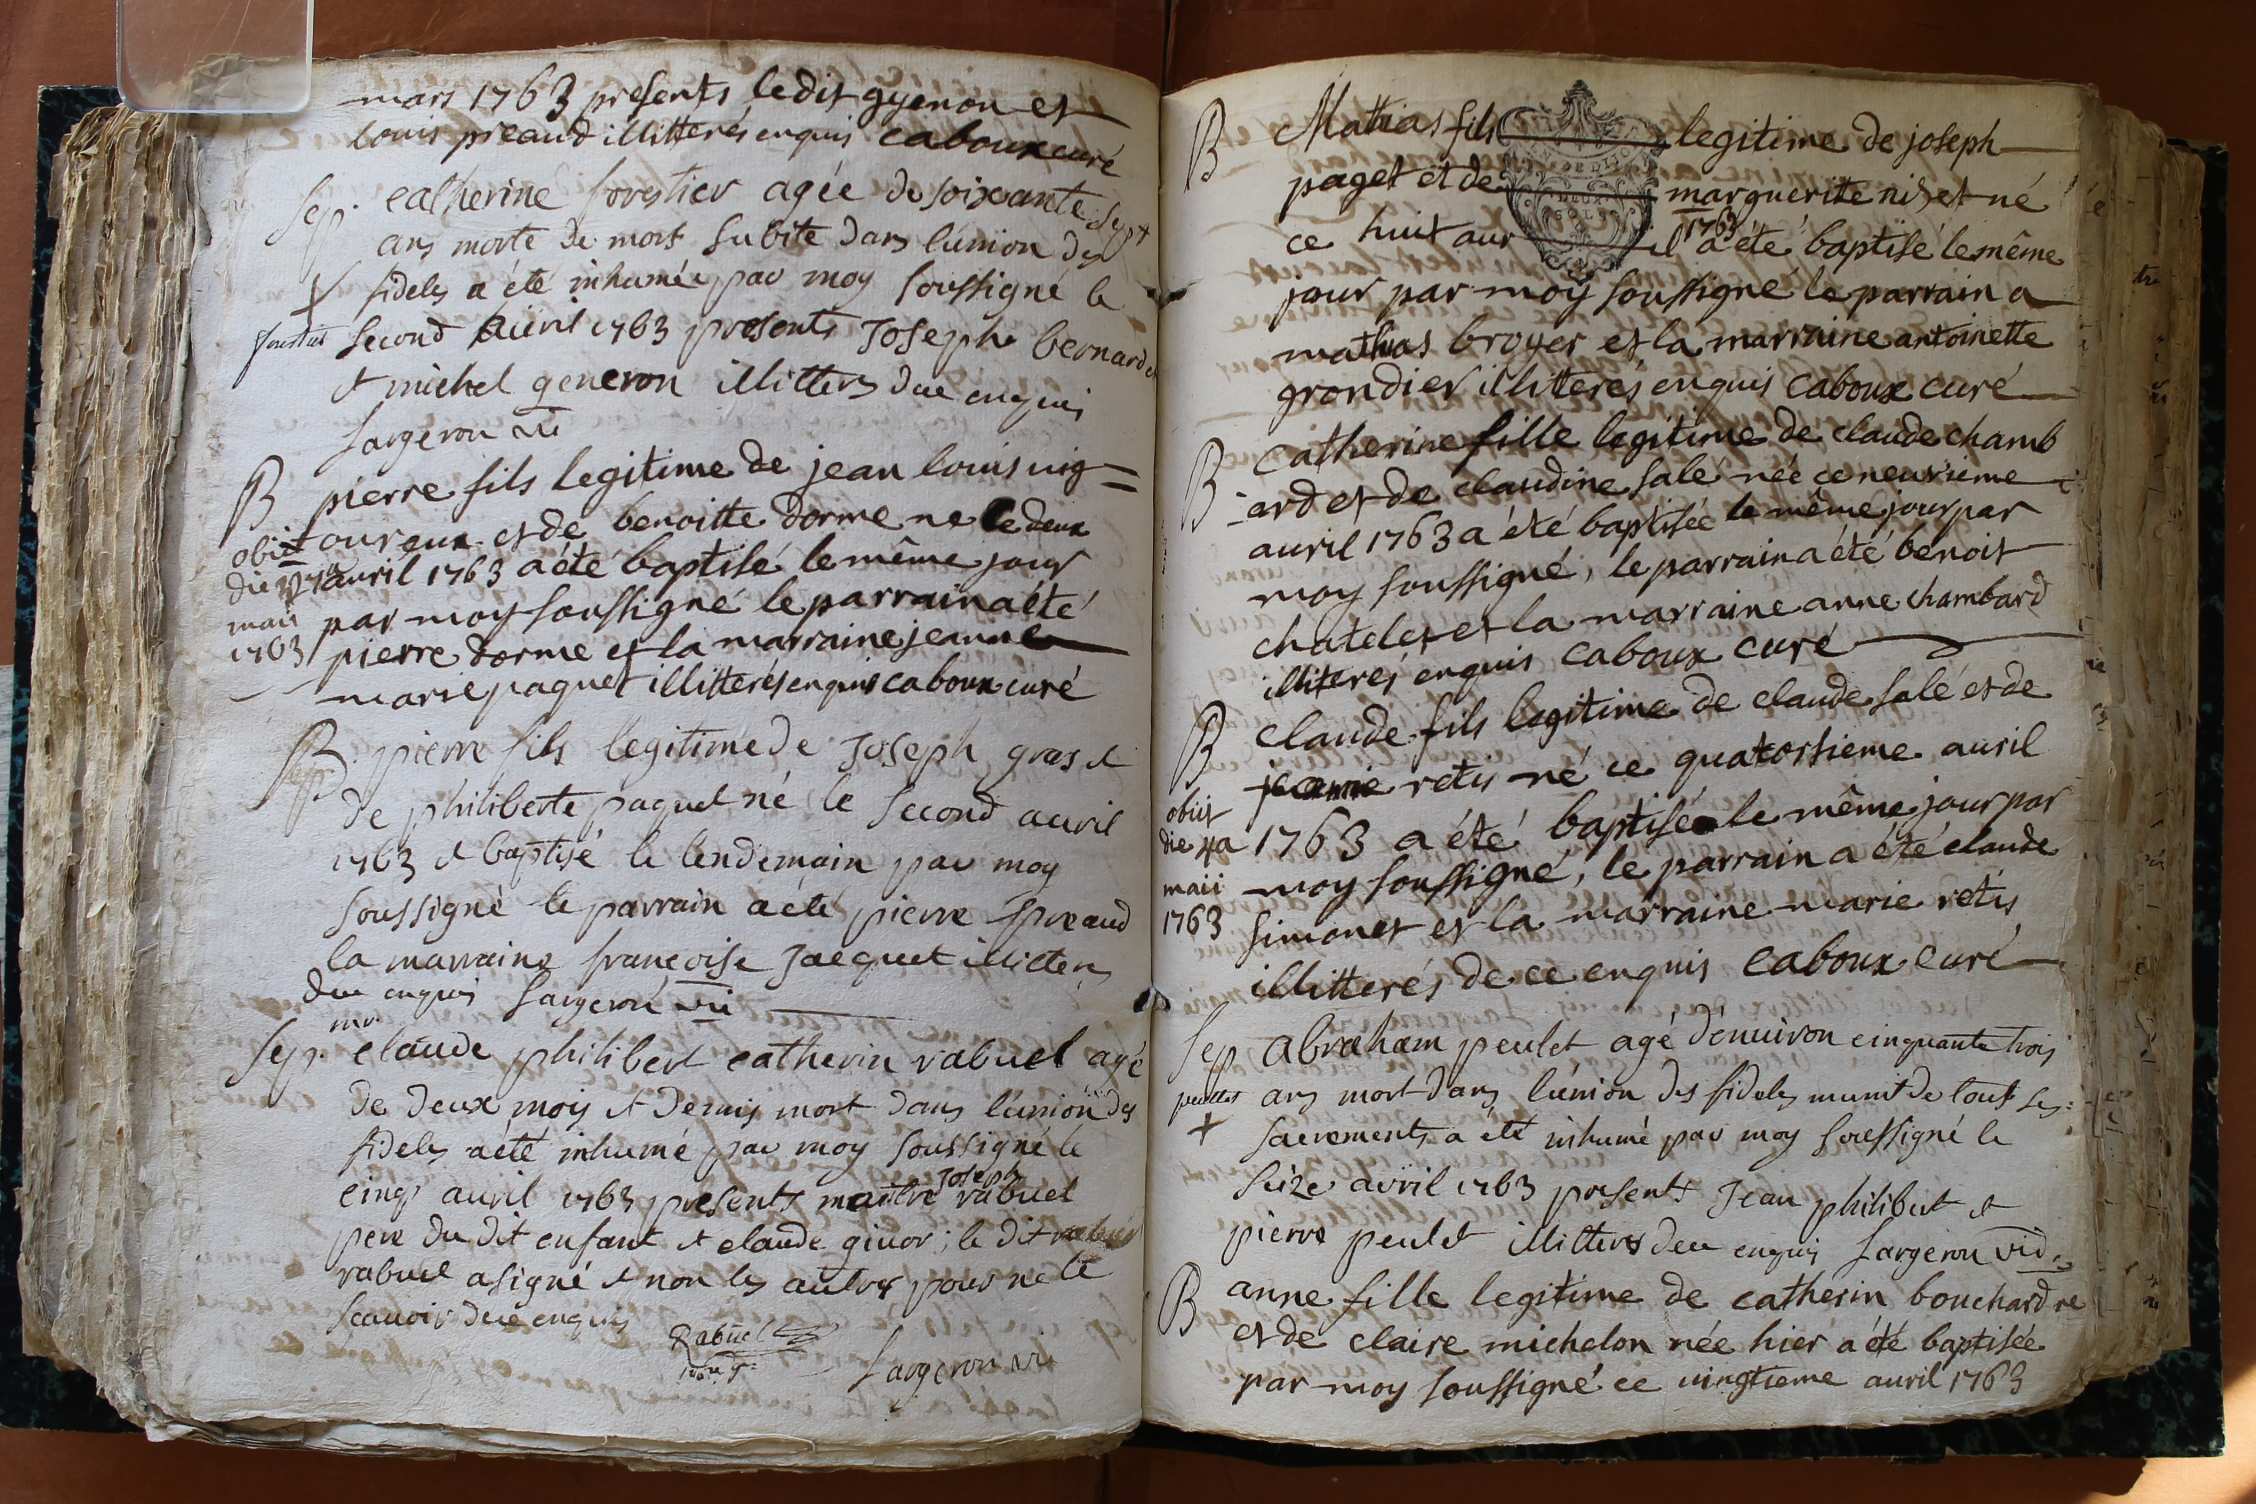 mars 1763 presents ledit gyenon et
louis preaud illitterés enquis caboux curé
Sep. catherine forestier agée de soixante sept
ans morte de mort subite dans l'union des
fideles a été inhumée par moy soussigné le
second avril 1763 presents Joseph bernard
et michel generon illitters due enquis
Sargeron vic
B pierre fils legitime de jean louis vig=
oureux et de benoitte dorme né le deux
avril 1763 a été baptisé le même jour
par moy soussigné le parrain a été
pierre dorme et la marraine jeanne
marie paquet illitterés enquis caboux curé
obiit
die
maii
1763
B pierre fils legitime de Joseph gras et
Sep.
de philiberte paquet né le second avril
1763 et baptisé le lendemain par moy
soussigné le parrain a été pierre preaud
la marraine françoise Jacquet illitters
due enquis Sargeron vic
mr.
Sep. claude philibert catherin rabuel agé
de deux mois et demis mort dans l'union des
fideles a été inhumé par moy soussigné le
cinq avril 1763 presents maître Joseph rabuel
pere du dit enfant et claude givor; le dit
rabuel a signé et non les autres pour ne le
scavoir due enquis
Rabuel
Sargeron vic
B Mathias fils legitime de joseph
paget et de marguerite nizet né
ce huit avril 1763 a été baptisé le même
jour par moy soussigné le parrain a
mathias broyer et la marraine antoinette
grondier illitterés enquis caboux curé
B Catherine fille legitime de claude chamb
-ard et de claudine salé née ce neuvieme
avril 1763 a été baptisée le même jour par
moy soussigné, le parrain a été benoit
chatelet et la marraine anne chambard
illiterés enquis caboux curé
B claude fils legitime de claude salé et de
jeanne retis né ce quatorsieme avril
1763 a été baptisé le même jour par
moy soussigné, le parrain a été claude
simonet et la marraine marie retis
illitterés de ce enquis caboux curé
obiit
die 4a
maii
1763
Sep abraham peulet agé d'enuiron cinquante trois
peulet ans mort dans l'union des fideles munit de tout ses
sacrements a été inhumé par moy soussigné le
seize avril 1763 presents Jean philibert et
pierre peulet illitters due enquis Sargeron vic
B anne fille legitime de catherin bouchard
et de claire michelon née hier a été baptisée
par moy soussigné ce vingtieme avril 1763